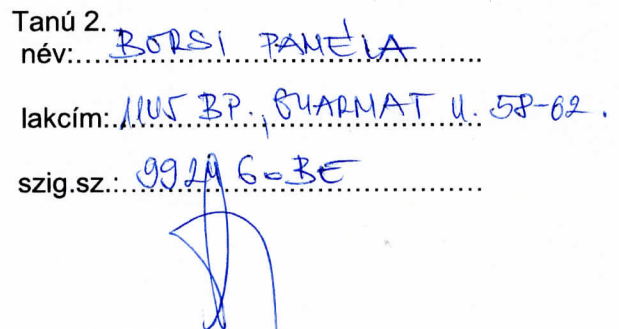 Tanú 2.
név: BORSI PAMÉLA
lakcím: 1145 BP., GYARMAT U. 58-62.
szig.sz.: BE